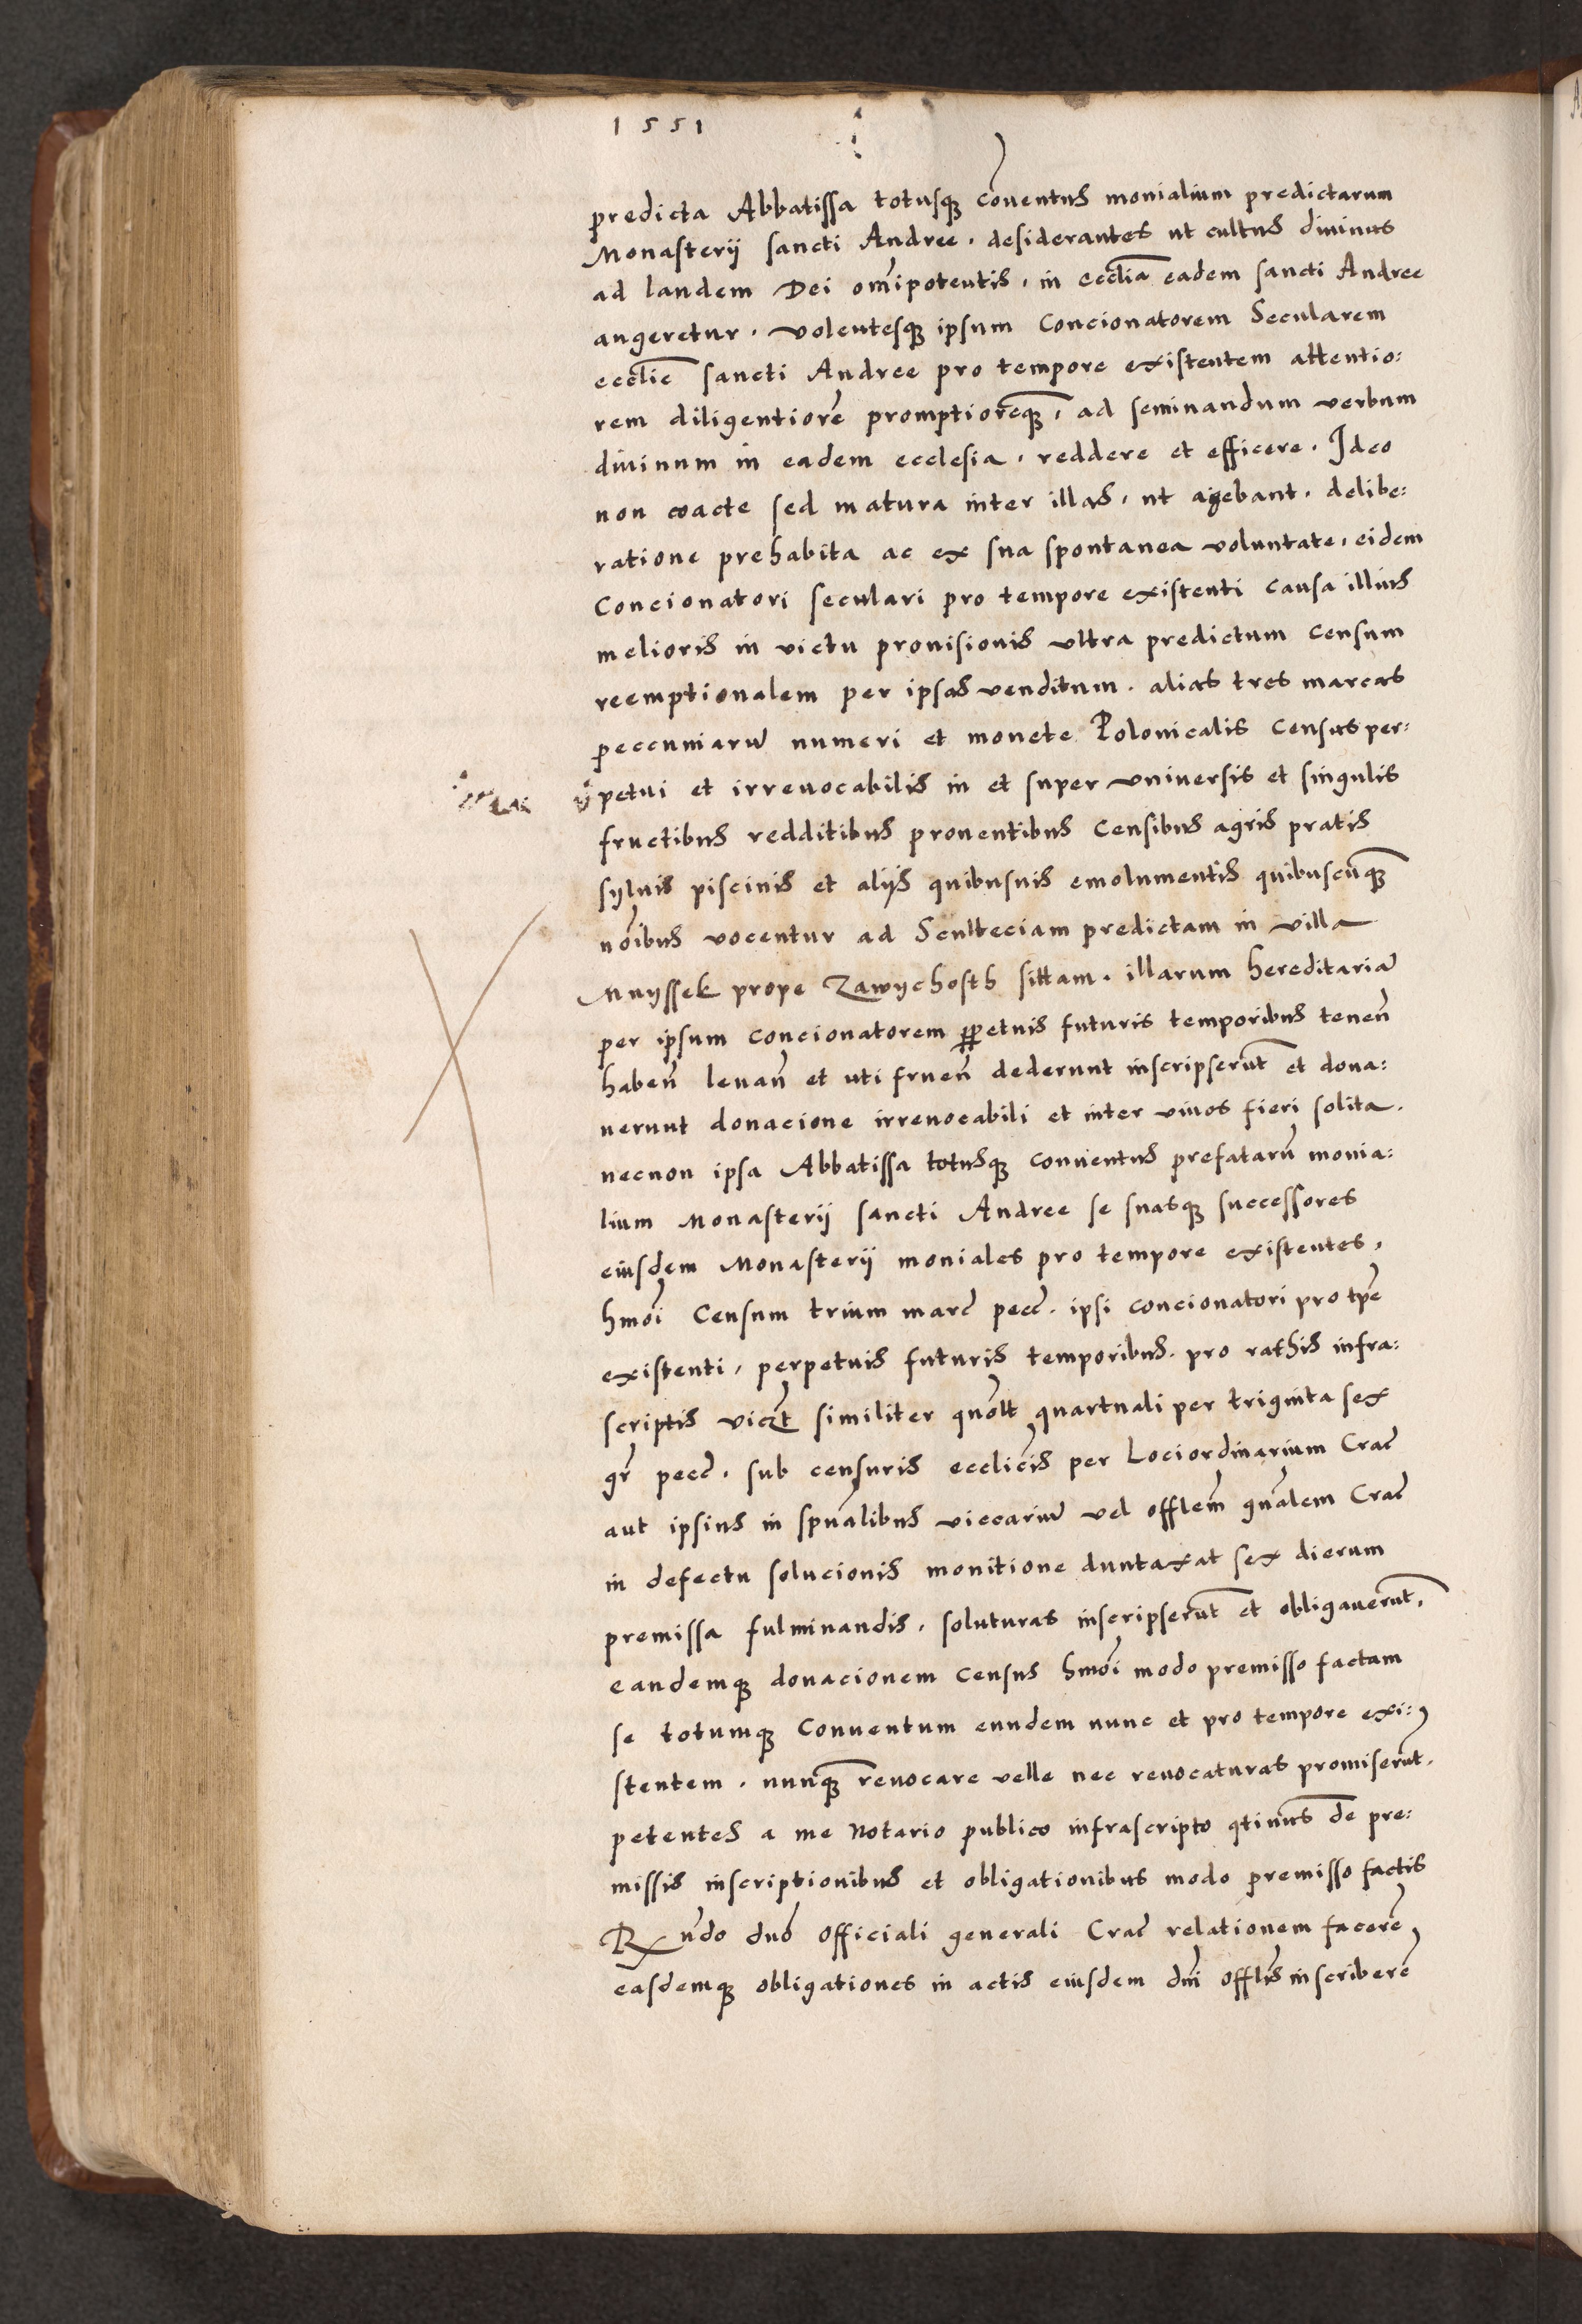 1551
predicta Abbatissa totusq3 cōuentus monialium predictarum
Monasterij sancti Andree. desiderantes ut cultus diuinus
ad laudem Dei om̄ipotentis, in eccl̄ia eadem sancti Andree
augeretur. volentesq3 ipsum Concionatorem Secularem
eccl̄ie sancti Andree pro tempore existentem attentio:
rem diligentiorē promptiorēq3, ad seminandum verbum
diuinum in eadem ecclesia, reddere et efficere. Ideo
non coacte sed matura inter illas, ut agebant, delibe:
ratione prehabita ac ex sua spontanea voluntate, eidem
Concionatori seculari pro tempore existenti causa illius
melioris in victu prouisionis ultra predictum censum
reemptionalem per ipsas venditum. alias tres marcas
peccuniarū numeri et monete Polonicalis census per:
petui et irreuocabilis in et super vniuersis et singulis
fructibus redditibus prouentibus censibus agris pratis
syluis piscinis et alijs quibusuis emolumentis quibuscūq3
nōibus vocentur ad Sculteciam predictam in villa
Muyssek prope Zawychosth sittam. illarum hereditariā
per ipsum concionatorem ꝑpetuis futuris temporibus tenen̄
haben̄ leuan̄ et uti fruen̄ dederunt inscripserūt et dona:
uerunt donacione irreuocabili et inter viuos fieri solita.
necnon ipsa Abbatissa totusq3 conuentus prefatarū monia:
lium Monasterij sancti Andree se suasq3 successores
eiusdem Monasterij moniales pro tempore existentes,
hmōi Censum trium marc̄ pecc̄. ipsi concionatori pro tp̄e
existenti, perpetuis futuris temporibus. pro rathis infra:
scriptis vicȝt similiter quōlt quartuali per triginta sex
gr̄ pecc̄. sub censuris ecclīcis per Lociordinarium Crac̄
aut ipsius in spūalibus viccariū vel offlem̄ gn̄alem Crac̄
in defectu solucionis monitione duntaxat sex dierum
premissa fulminandis, soluturas inscripserūt et obligauerūt,
eandemq3 donacionem census hmōi modo premisso factam
se totumq3 Conuentum eundem nunc et pro tempore exi:
stentem. nunq3 reuocare velle nec reuocaturas promiserūt.
petentes a me Notario publico infrascripto q̄tinus de pre:
missis inscriptionibus et obligationibus modo premisso factis
Rn̄do dnō Officiali generali Crac̄ relationem facerē
easdemq3 obligationes in actis eiusdem dn̄i offl̄is inscriberē